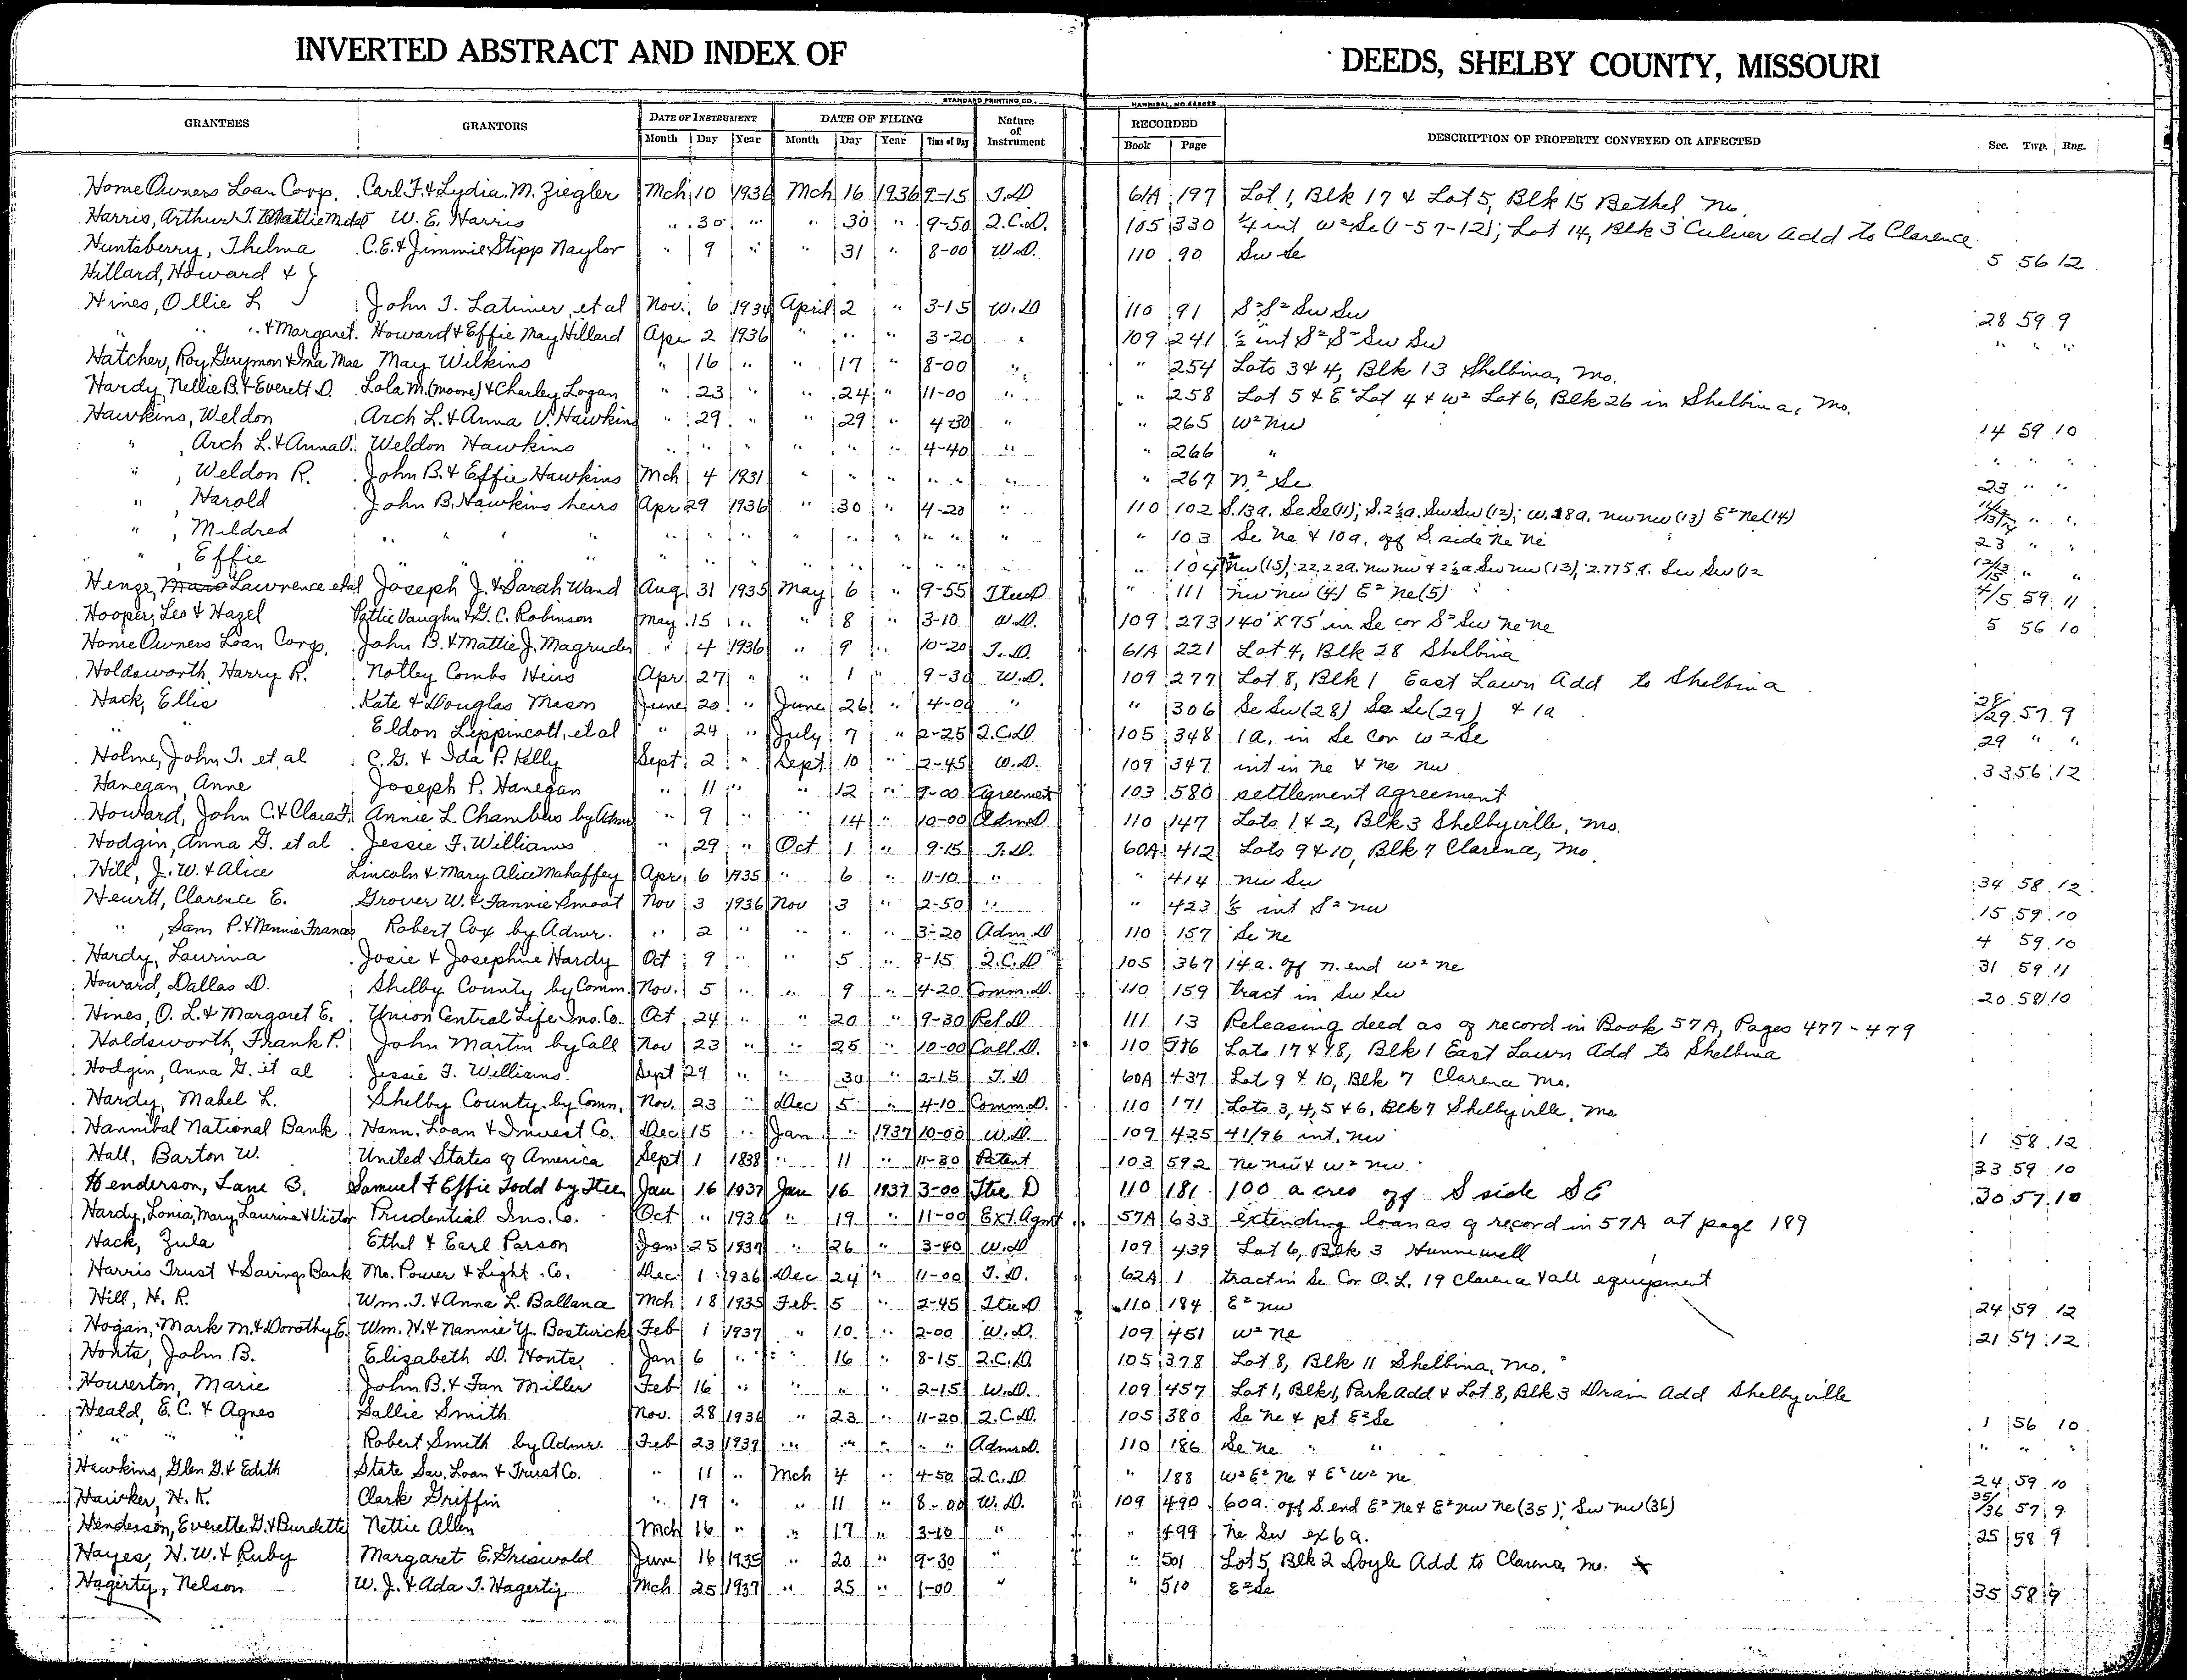 INVERTED ABSTRACT AND INDEX OF DEEDS, SHELBY COUNTY, MISSOURI
STANDARD PRINTING CO., HANNIBAL, MO.
GRANTEES GRANTORS DATE OF INSTRUMENT DATE OF FILING Nature of Instrument RECORDED DESCRIPTION OF PROPERTY CONVEYED OR AFFECTED Sec. Twp. Rng.
Month Day Year Month Day Year Time of Day Book Page
Home Owners Loan Corp. Carl F. & Lydia M. Ziegler Mch 10 1936 Mch 16 1936 9-15 T.D 61A 197 Lot 1, Blk 17 & Lot 5, Blk 15 Bethel Mo.
Harris, Arthur T. W. E. Harris " 30 " " 30 " 9-50 Q.C.D. 105 330 1/4 int W² Se (1-57-12); Lot 14, Blk 3 Culver Add to Clarence
Huntsberry, Thelma C.E. & Jimmie Stipp Naylor " 9 " " 31 " 8-00 W.D. 110 90 Sw Se 5 56 12
Hillard, Howard & }
Hines, Ollie L John T. Latimer, et al Nov. 6 1934 April 2 " 3-15 W.D 110 91 S² S² Sw Sw 28 59 9
" " " & Margaret. Howard & Effie May Hillard Apr 2 1936 " " " 3-20 " 109 241 ½ int S² S² Sw Sw " " "
Hatcher, Roy Guymon & Ina Mae May Wilkins " 16 " " 17 " 8-00 " " 254 Lots 3 & 4, Blk 13 Shelbina, Mo.
Hardy, Nellie B. & Everett D. Lola M. (Moore) & Charley Logan " 23 " " 24 " 11-00 " " 258 Lot 5 & E² Lot 4 & W² Lot 6, Blk 26 in Shelbina, Mo.
Hawkins, Weldon Arch L. & Anna V. Hawkins " 29 " " 29 " 4-30 " " 265 W² Nw 14 59 10
" , Arch L. & Anna V. Weldon Hawkins " " " " " " 4-40 " " 266 " " " "
" , Weldon R. John B. & Effie Hawkins Mch 4 1931 " " " " " " " 267 N² Se 23 " "
" , Harold John B. Hawkins heirs Apr 29 1936 " 30 " 4-20 " 110 102 S. 13a. Se Se (11); S. 2½a. Sw Sw (12); W. 18a. Nw Nw (13) E² Ne (14) 11/12/13/14 " "
" , Mildred " " " " " " " " " " " " " " 103 Se Ne & 10a. off S. side Ne Ne 23 " "
" , Effie " " " " " " " " " " " " 104 Nw (15); 22.22a. Nw Nw & 2½a Sw Nw (13); 2.775a. Sw Sw (12 12/13/15 " "
Henze, Lawrence et al Joseph J. & Sarah Wand Aug 31 1935 May 6 " 9-55 Trus D " 111 Nw Nw (4) E² Ne (5) 4/5 59 11
Hooper, Leo & Hazel Pattie Vaughn & G. C. Robinson May 15 " " 8 " 3-10 W.D. 109 273 140' X 75' in Se cor S² Sw Ne Ne 5 56 10
Home Owners Loan Corp. John B. & Mattie J. Magruder " 4 1936 " 9 " 10-20 T.D. 61A 221 Lot 4, Blk 28 Shelbina
Holdsworth, Harry R. Notley Combs Heirs Apr 27 " " 1 " 9-30 W.D. 109 277 Lot 8, Blk 1 East Lawn Add to Shelbina
Hack, Ellis Kate & Douglas Mason June 20 " June 26 " 4-00 " " 306 Se Sw (28) Se Se (29) & 1a 28/29 57 9
" " Eldon Lippincott, et al " 24 " July 7 " 2-25 Q.C.D 105 348 1a. in Se Cor W² Se 29 " "
Holme, John T. et al C. G. & Ida P. Kelly Sept 2 " Sept 10 " 2-45 W.D. 109 347 int in Ne & Ne Nw 33 56 12
Hanegan, Anne Joseph P. Hanegan " 11 " " 12 " 9-00 Agreement 103 580 settlement agreement
Howard, John C. & Clara F. Annie L. Chambers by Admr " 9 " " 14 " 10-00 Adm D 110 147 Lots 1 & 2, Blk 3 Shelbyville, Mo.
Hodgin, Anna G. et al Jessie F. Williams " 29 " Oct 1 " 9-15 T.D. 60A 412 Lots 9 & 10, Blk 7 Clarence, Mo.
Hill, J. W. & Alice Lincoln & Mary Alice Mahaffey Apr 6 1935 " 6 " 11-10 " " 414 Nw Sw 34 58 12
Hewitt, Clarence E. Grover W. & Fannie Smoot Nov 3 1936 Nov 3 " 2-50 " " 423 1/5 int S² Nw 15 59 10
" , Sam P. & Nannie Frances Robert Cox by Admr. " 2 " " " " 3-20 Adm. D 110 157 Se Ne 4 59 10
Hardy, Laurina Josie & Josephine Hardy Oct 9 " " 5 " 8-15 Q.C.D 105 367 14a. off N. end W² Ne 31 59 11
Howard, Dallas D. Shelby County by Comm. Nov. 5 " " 9 " 4-20 Comm. D. 110 159 tract in Sw Sw 20 58 10
Hines, O. L. & Margaret E. Union Central Life Ins. Co. Oct 24 " " 20 " 9-30 Rel. D 111 13 Releasing deed as of record in Book 57A, Pages 477-479
Holdsworth, Frank P. John Martin by Coll Nov 23 " " 25 " 10-00 Coll. D. 110 Lots 17 & 18, Blk 1 East Lawn Add to Shelbina
Hodgin, Anna G. et al Jessie F. Williams Sept 29 " " 30 " 2-15 T.D 60A 437 Lot 9 & 10, Blk 7 Clarence Mo.
Hardy, Mabel L. Shelby County by Comm. Nov. 23 " Dec 5 " 4-10 Comm D. 110 171 Lots 3, 4, 5 & 6, Blk 7 Shelbyville, Mo
Hannibal National Bank Hann. Loan & Invest Co. Dec 15 " Jan " 1937 10-00 W.D. 109 425 41/96 int. Nw 1 58 12
Hall, Barton W. United States of America Sept 1 1838 " 11 " 11-30 Patent 103 592 Ne Nw & W² Nw 33 59 10
Henderson, Lane B. Samuel & Effie Todd by Trus Jan 16 1937 Jan 16 1937 3-00 Tru D 110 181 100 acres off S side SE 30 57 10
Hardy, Lonia, Mary, Laurina & Victor Prudential Ins. Co. Oct " 1936 " 19 " 11-00 Ext. Agmt 57A 633 extending loan as of record in 57A at page 189
Hack, Zula Ethel & Earl Parson Jan 25 1937 " 26 " 3-40 W.D 109 439 Lot 6, Blk 3 Hunnewell
Harris Trust & Savings Bank Mo. Power & Light Co. Dec. 1 1936 Dec 24 " 11-00 T.D. 62A 1 tract in Se Cor O.L. 19 Clarence & all equipment
Hill, H. R. Wm. T. & Anna L. Ballance Mch 18 1935 Feb. 5 " 2-45 Trus D 110 184 E² Nw 24 59 12
Hogan, Mark M. & Dorothy E. Wm. H. & Nannie Y. Bostwick Feb 1 1937 " 10 " 2-00 W.D. 109 451 W² Ne 21 57 12
Honts, John B. Elizabeth D. Honts. Jan 6 " " 16 " 8-15 Q.C.D. 105 378 Lot 8, Blk 11 Shelbina, Mo.
Howerton, Marie John B. & Fan Miller Feb 16 " " " " 2-15 W.D. 109 457 Lot 1, Blk 1, Park Add & Lot 8, Blk 3 Drain Add Shelbyville
Heald, E. C. & Agnes Sallie Smith Nov. 28 1936 " 23 " 11-20 Q.C.D. 105 380 Se Ne & pt E² Se 1 56 10
" " " Robert Smith by Admr. Feb 23 1937 " " " " " Admr D. 110 186 Se Ne " " " " "
Hawkins, Glen G. & Edith State Sav. Loan & Trust Co. " 11 " Mch 4 " 4-50 Q.C.D " 188 W² E² Ne & E² W² Ne 24 59 10
Hawker, H. K. Clark Griffin " 19 " " 11 " 8-00 W.D. 109 490 60a. off S. end E² Ne & E² Nw Ne (35); Sw Nw (36) 35/36 57 9
Henderson, Everette G. & Burdette Nettie Allen Mch 16 " " 17 " 3-10 " " 499 Ne Sw ex 6a. 25 58 9
Hayes, H. W. & Ruby Margaret E. Griswold June 16 1935 " 20 " 9-30 " " 501 Lot 5, Blk 2 Doyle Add to Clarence, Mo.
Hagerty, Nelson W. J. & Ada T. Hagerty Mch 25 1937 " 25 " 1-00 " " 510 E² Se 35 58 9